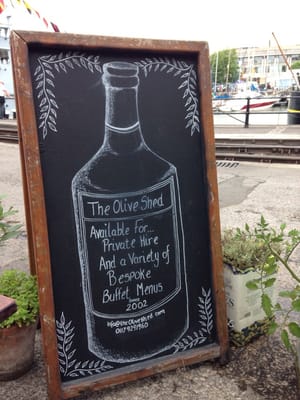 The Olive Shed
Available For...
Private Hire
And a Variety of
Bespoke
Buffet Menus
Since
2002
info@theOliveshed.com